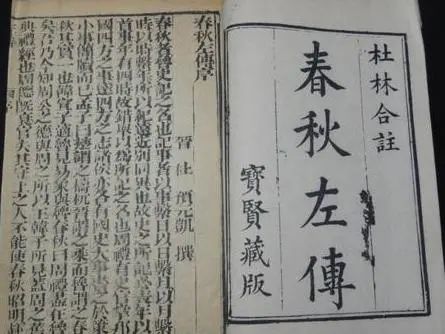 杜林合註
春秋左傳
寶賢藏版
春秋左傳序
晉 杜 預元凱 撰
春秋者魯史記之名也記事者以事繫日以日繫月以月繫
時以時繫年所以紀遠近別同異也故史之所記必表年以
首事年有四時故錯舉以爲所記之名也周禮有史官掌邦
國四方之事達四方之志諸侯亦各有國史大事書之於策
小事簡牘而已孟子曰楚謂之檮杌晉謂之乘而魯謂之春
秋其實一也韓宣子適魯見易象與魯春秋曰周禮盡在魯
矣吾乃今知周公之德與周之所以王韓子所見蓋周之舊
典禮經也周德既衰官失其守上之人不能使春秋昭明